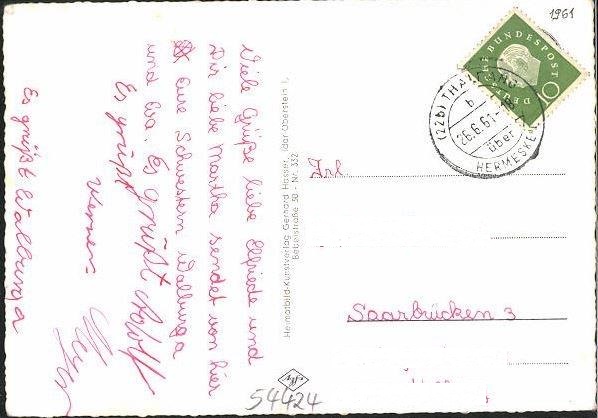 1961
Viele Grüße liebe Elfriede und
Dir liebe Martha sendet von hier
eure Schwestern Walburga
und Eva. Es grüßt Adolf
Es grüßt
Werner
Es grüßt Walburga
Heimatbild-Kunstverlag Gerhard Hassler, Idar-Oberstein 1,
Nr. 332
DEUTSCHE BUNDESPOST
10
(22b) THALFANG
b
26.6.61
über
HERMESKEIL
Frl.
Saarbrücken 3
54424